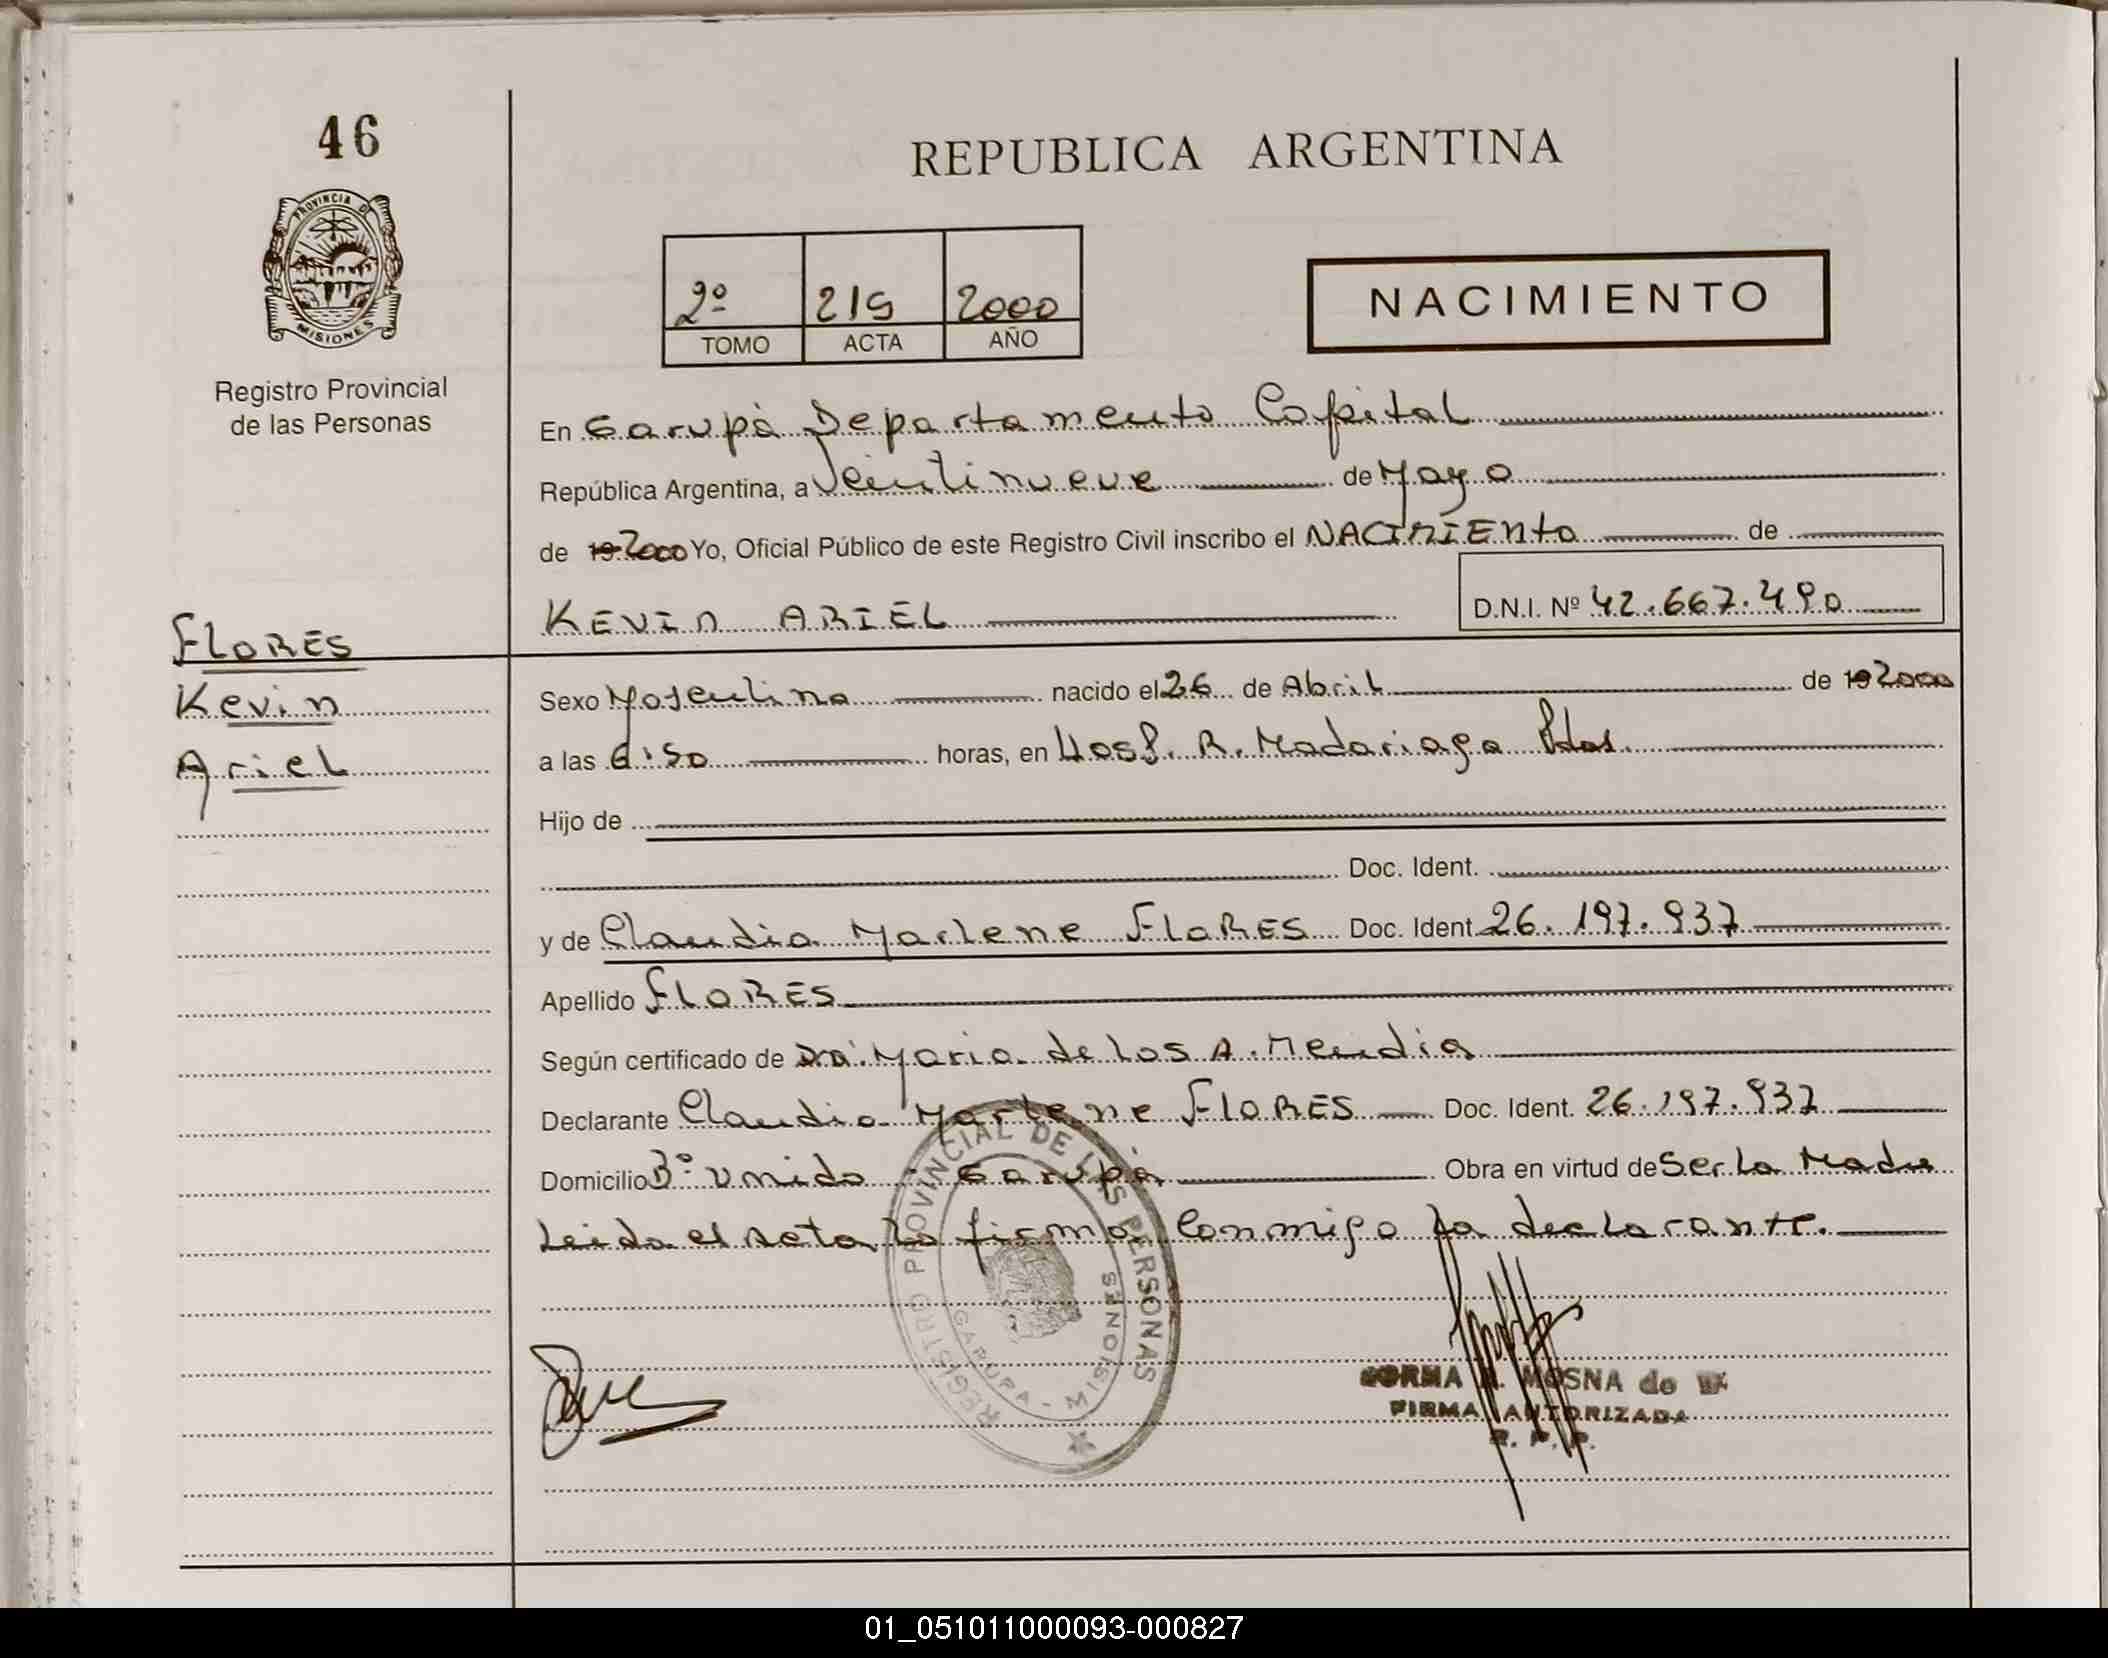 46
PROVINCIA DE
MISIONES
Registro Provincial
de las Personas
REPUBLICA ARGENTINA
2º 219 2000
TOMO ACTA AÑO
NACIMIENTO
En Garupá Departamento Capital
República Argentina, a Veintinueve de Mayo
de 19 2000 Yo, Oficial Público de este Registro Civil inscribo el NACIMIENto de
KEVIN ARIEL D.N.I. Nº 42.667.490
FLORES
Kevin
Ariel
Sexo Masculino nacido el 26 de Abril de 19 2000
a las 6:50 horas, en Hosp. R. Madariaga Pdas.
Hijo de
Doc. Ident.
y de Claudia Marlene FLORES Doc. Ident. 26.197.937
Apellido FLORES
Según certificado de Dra. Maria de los A. Mendia
Declarante Claudia Marlene FLORES Doc. Ident. 26.197.937
Domicilio Bº Unido - Garupá Obra en virtud de Ser la Madre
Leida el acta la firma Conmigo la declarante.
REGISTRO PROVINCIAL DE LAS PERSONAS
GARUPA - MISIONES
NORMA MOSNA de
FIRMA AUTORIZADA
R. P. P.
01_051011000093-000827